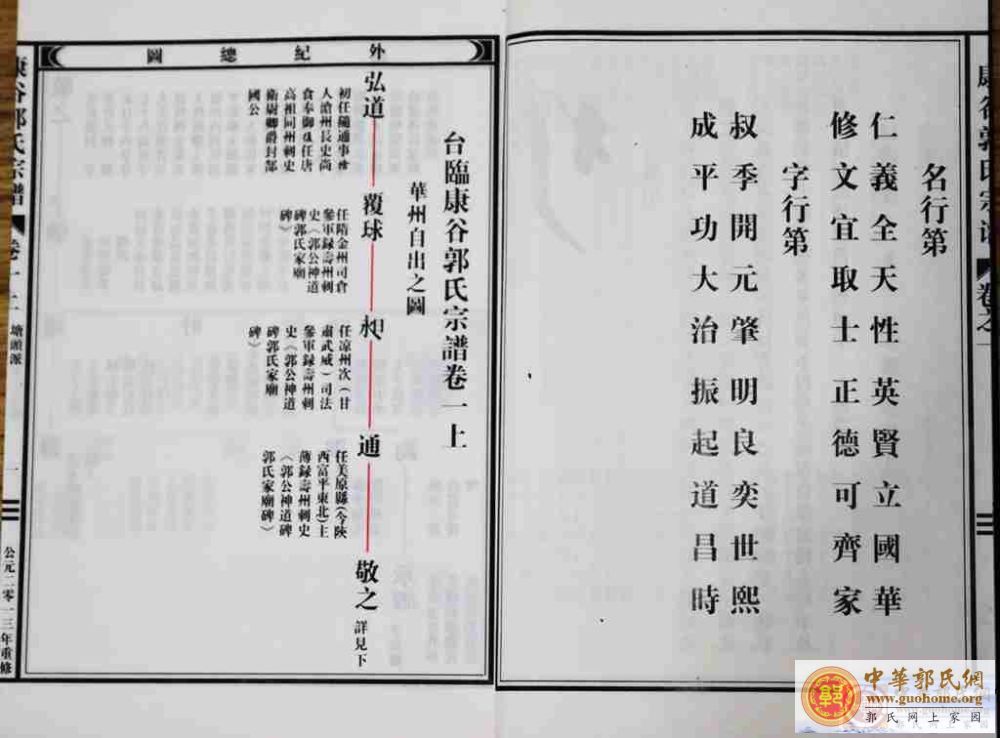 名行第
仁義全天性英賢立國華
修文宜取士正德可齊家
字行第
叔季開元肇明良奕世熙
成平功大治振起道昌時
外紀總圖
台臨康谷郭氏宗譜卷一上
華州自出之圖
弘道
初任隨通事舍
人滄州長史尚
食奉御及任唐
高祖同州刺史
衛尉卿爵封部
國公
覆球
任隋金州司倉
參軍録壽州刺
史〈郭公神道
碑郭氏家廟
碑〉
昶
任凉州次（甘
肅武威）司法
參軍録壽州刺
史〈郭公神道
碑郭氏家廟
碑〉
通
任美原縣(今陝
西富平東北)主
薄録壽州刺史
〈郭公神道碑
郭氏家廟碑〉
敬之 詳見下
康谷郭氏宗譜 卷十二 塘頭派 一
公元二零一三年重修
康谷郭氏宗譜 卷之一
中華郭氏網
www.guohome.org
郭氏网上家园